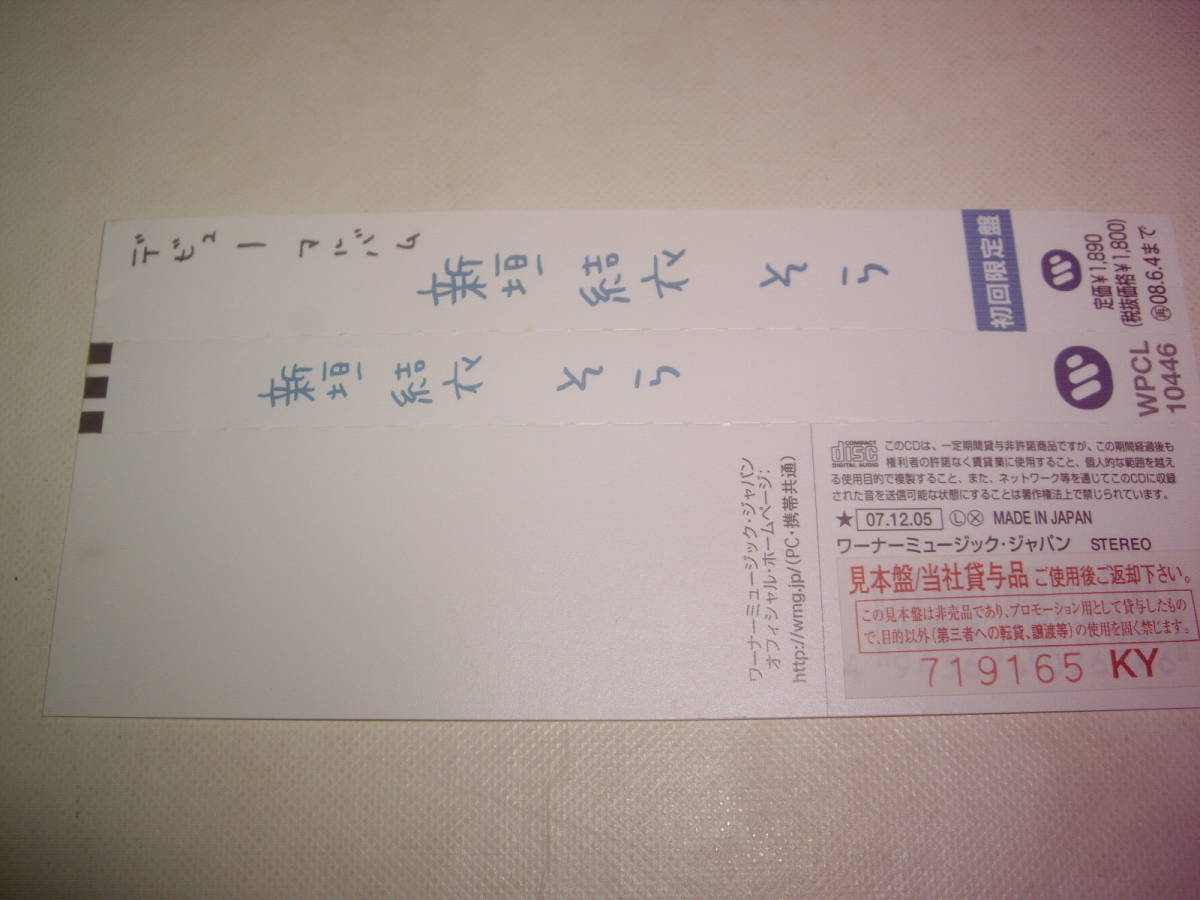 デビューアルバム
新垣結衣 そら
初回限定盤
定価¥1,890
(税抜価格¥1,800)
再08.6.4まで
新垣結衣 そら
WPCL
10446
ワーナーミュージック・ジャパン
オフィシャル・ホームページ：
http://wmg.jp/(PC・携帯共通)
COMPACT
disc
DIGITAL AUDIO
このCDは、一定期間貸与非許諾商品ですが、この期間経過後も
権利者の許諾なく賃貸業に使用すること、個人的な範囲を越え
る使用目的で複製すること、また、ネットワーク等を通じてこのCDに収録
された音を送信可能な状態にすることは著作権法上で禁じられています。
★ 07.12.05 Ⓛ ⓧ MADE IN JAPAN
ワーナーミュージック・ジャパン STEREO
見本盤/当社貸与品 ご使用後ご返却下さい。
この見本盤は非売品であり、プロモーション用として貸与したもの
で、目的以外(第三者への転貸、譲渡等)の使用を固く禁じます。
719165 KY